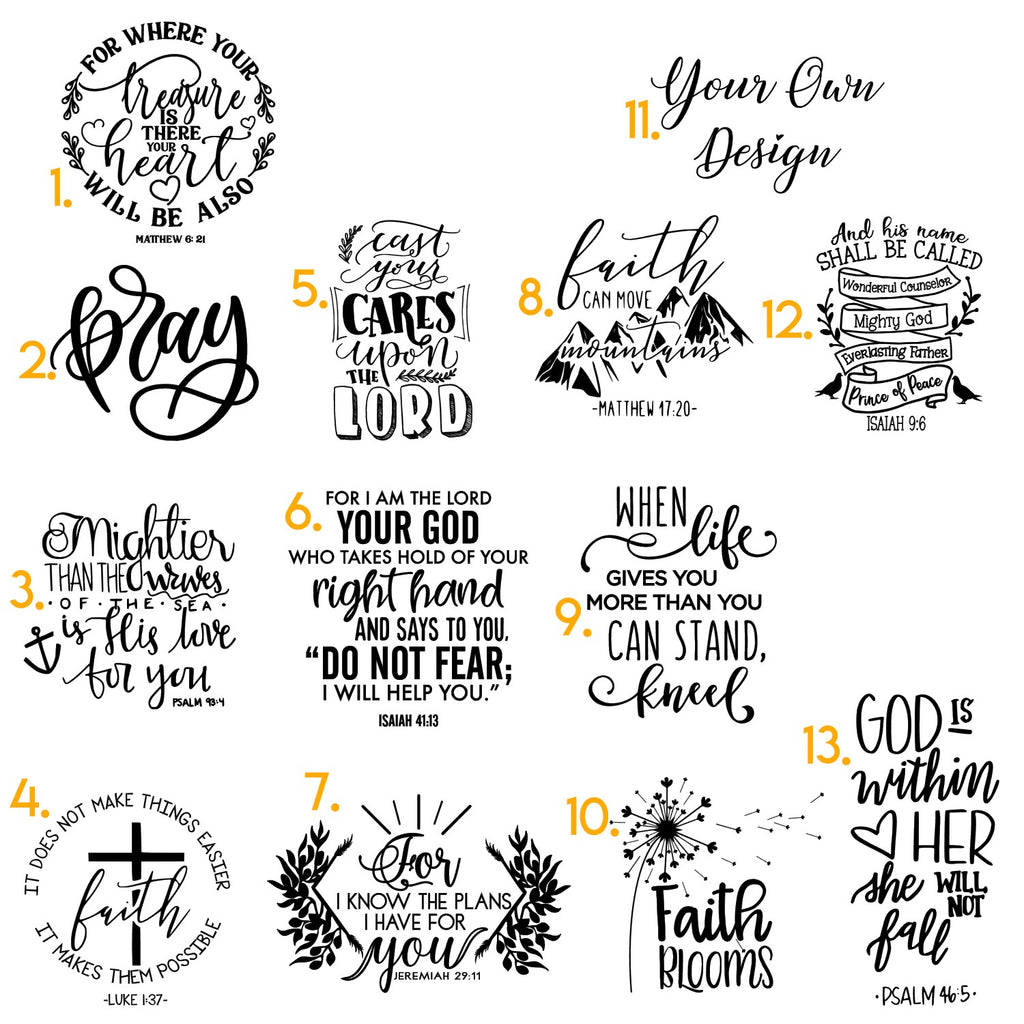 1.
FOR WHERE YOUR
treasure
IS
THERE
YOUR
heart
WILL BE ALSO
MATTHEW 6: 21
2.
pray
3.
Mightier
THAN THE waves
· OF · THE · SEA ·
is His love
for you
PSALM 93:4
4.
IT DOES NOT MAKE THINGS EASIER
faith
IT MAKES THEM POSSIBLE
-LUKE 1:37-
5.
cast
your
CARES
upon
THE
LORD
6.
FOR I AM THE LORD
YOUR GOD
WHO TAKES HOLD OF YOUR
right hand
AND SAYS TO YOU,
“DO NOT FEAR;
I WILL HELP YOU.”
ISAIAH 41:13
7.
For
I KNOW THE PLANS
I HAVE FOR
you
JEREMIAH 29:11
8.
faith
CAN MOVE
mountains
-MATTHEW 17:20-
9.
WHEN
life
GIVES YOU
MORE THAN YOU
CAN STAND,
kneel
10.
Faith
BLOOMS
11.
Your Own
Design
12.
And his name
SHALL BE CALLED
Wonderful Counselor
Mighty God
Everlasting Father
Prince of Peace
ISAIAH 9:6
13.
GOD IS
within
HER
she WILL
NOT
fall
·PSALM 46:5·